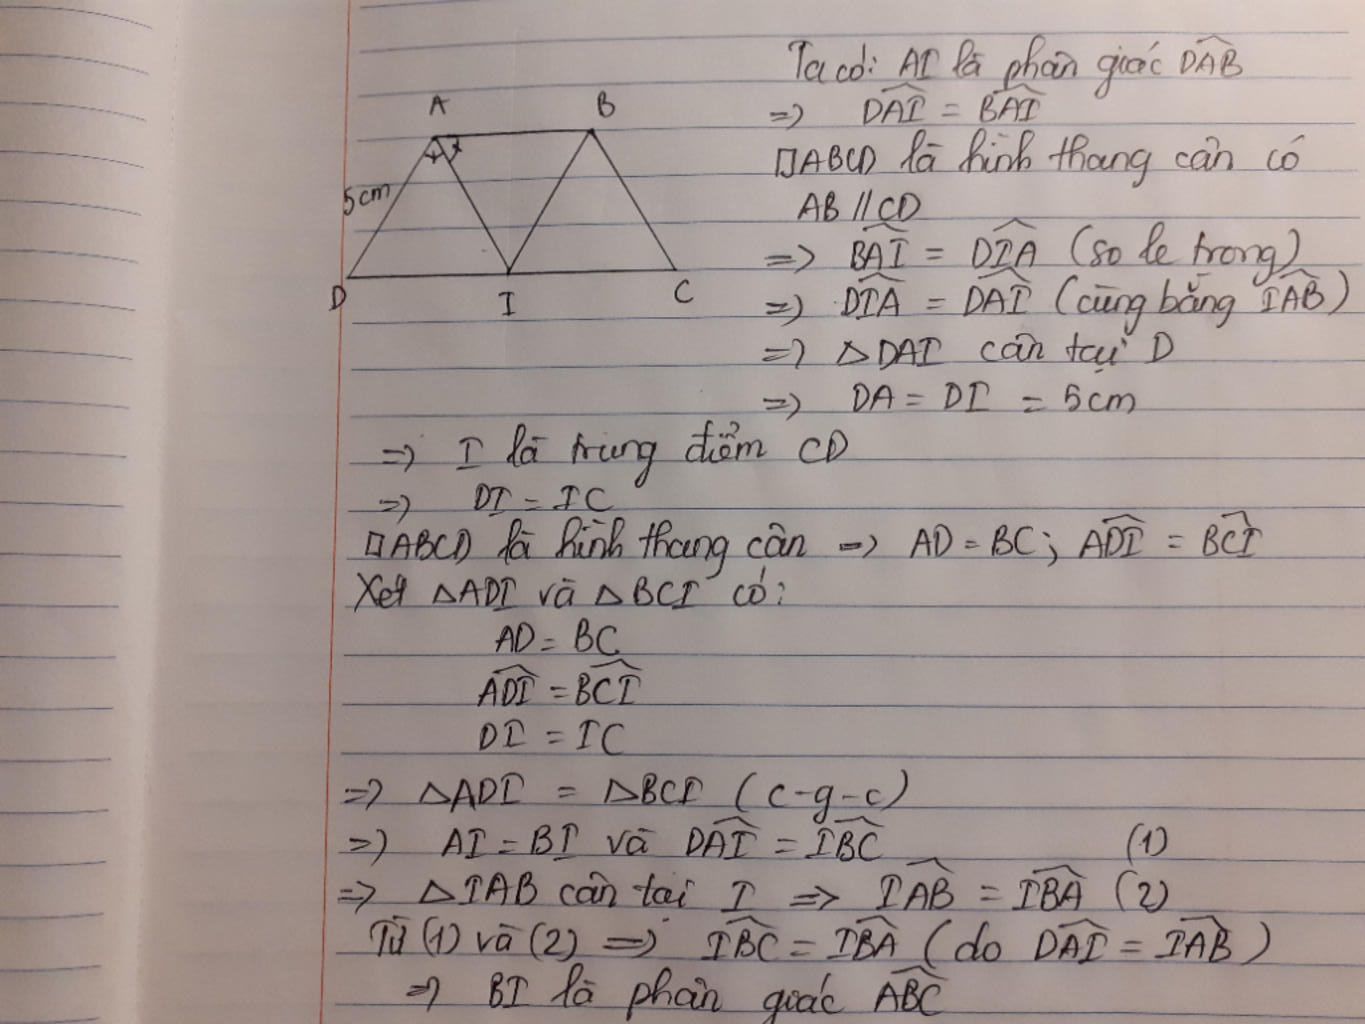 A B
5cm
D I C
Ta có: AI là phân giác D̂AB̂
=> DAI = BAI
□ABCD là hình thang cân có
AB // CD
=> BAI = DIA (so le trong)
=> DIA = DAI (cùng bằng IAB)
=> △DAI cân tại D
=> DA = DI = 5cm
=> I là trung điểm CD
=> DI = IC
□ABCD là hình thang cân => AD = BC; ADI = BCI
Xét △ADI và △BCI có:
AD = BC
ADI = BCI
DI = IC
=> △ADI = △BCI (c-g-c)
=> AI = BI và DAI = IBC (1)
=> △IAB cân tại I => IAB = IBA (2)
Từ (1) và (2) => IBC = IBA (do DAI = IAB)
=> BI là phân giác ABC